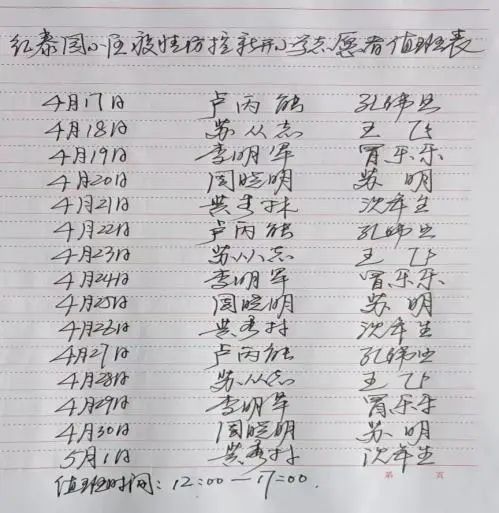 红泰园小区疫情防控新开小学志愿者值班表
4月17日 卢丙能 孔伟
4月18日 苏从志 王飞
4月19日 李明军 胃乐乐
4月20日 周晓明 苏明
4月21日 黄秀林 沈年生
4月22日 卢丙能 孔伟
4月23日 苏从志 王飞
4月24日 李明军 胃乐乐
4月25日 周晓明 苏明
4月26日 黄秀林 沈年生
4月27日 卢丙能 孔伟
4月28日 苏从志 王飞
4月29日 李明军 胃乐乐
4月30日 周晓明 苏明
5月1日 黄秀林 沈年生
值班时间：12:00—17:00.
第 页